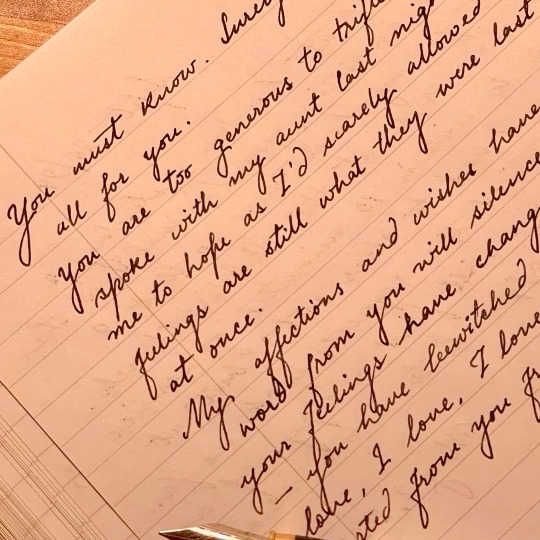 You must know. Surely
all for you.
You are too generous to trifle
spoke with my aunt last nigh
me to hope as I'd scarcely allowed
feelings are still what they were last
at once.
My affections and wishes have
word from you will silence
your feelings have chang
– you have bewitched
love, I love, I love
sted from you fr